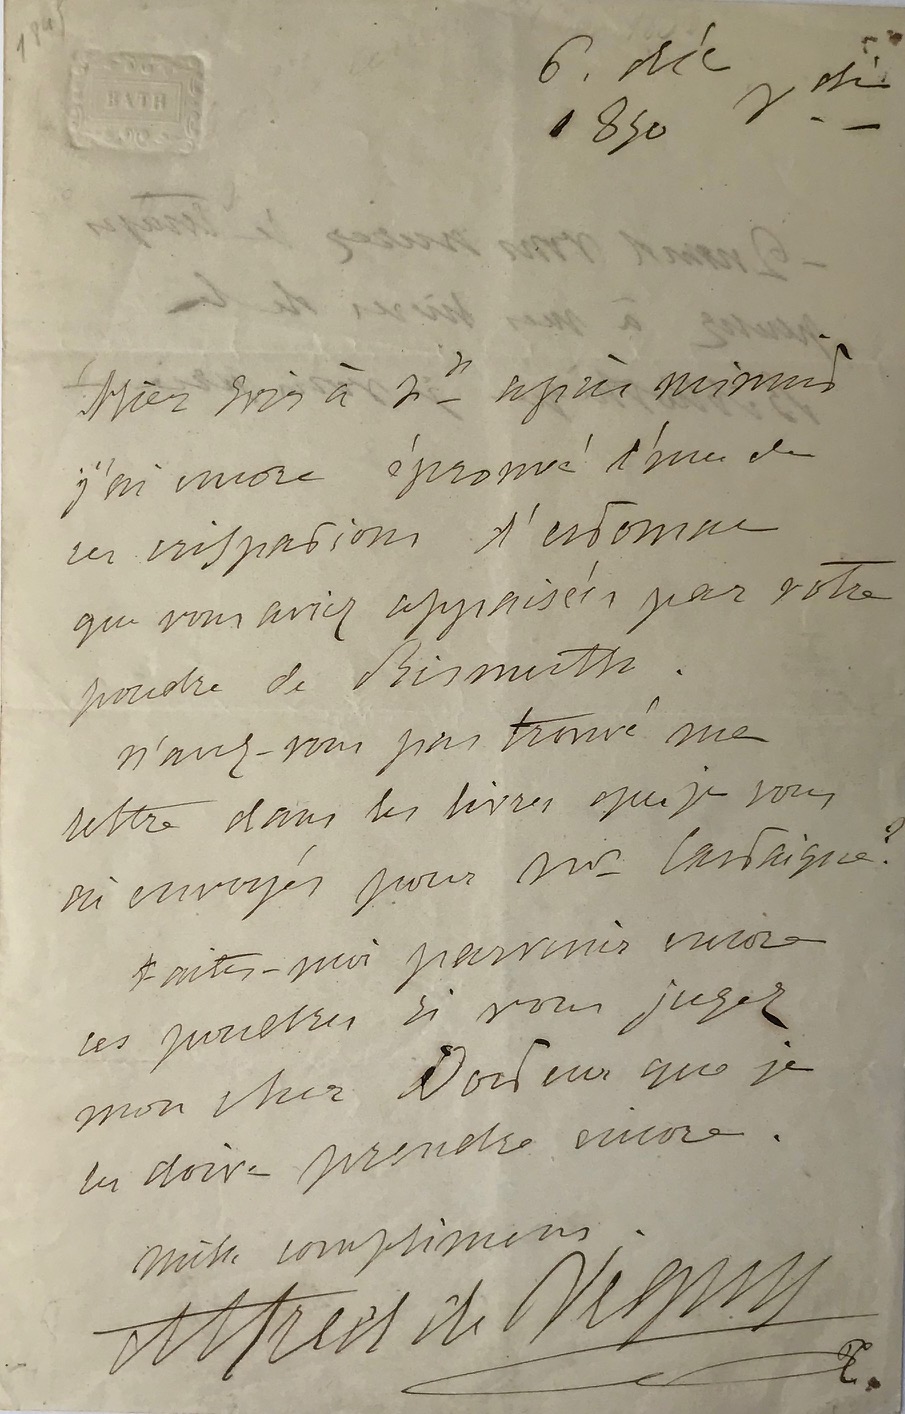 1845
BATH
6. déc
1850
Vdi
hier soir à 2h après minuit
j'ai encore éprouvé l'une de
ces crispations d'estomac
que vous aviez appaisées par votre
poudre de Bismuth.
n'avez-vous pas trouvé ma
lettre dans les livres que je vous
ai envoyés pour Mr Castaigne?
faites-moi parvenir encore
ces poudres si vous jugez
mon cher Docteur que je
les doive prendre encore.
mille complimens.
Alfred de Vigny